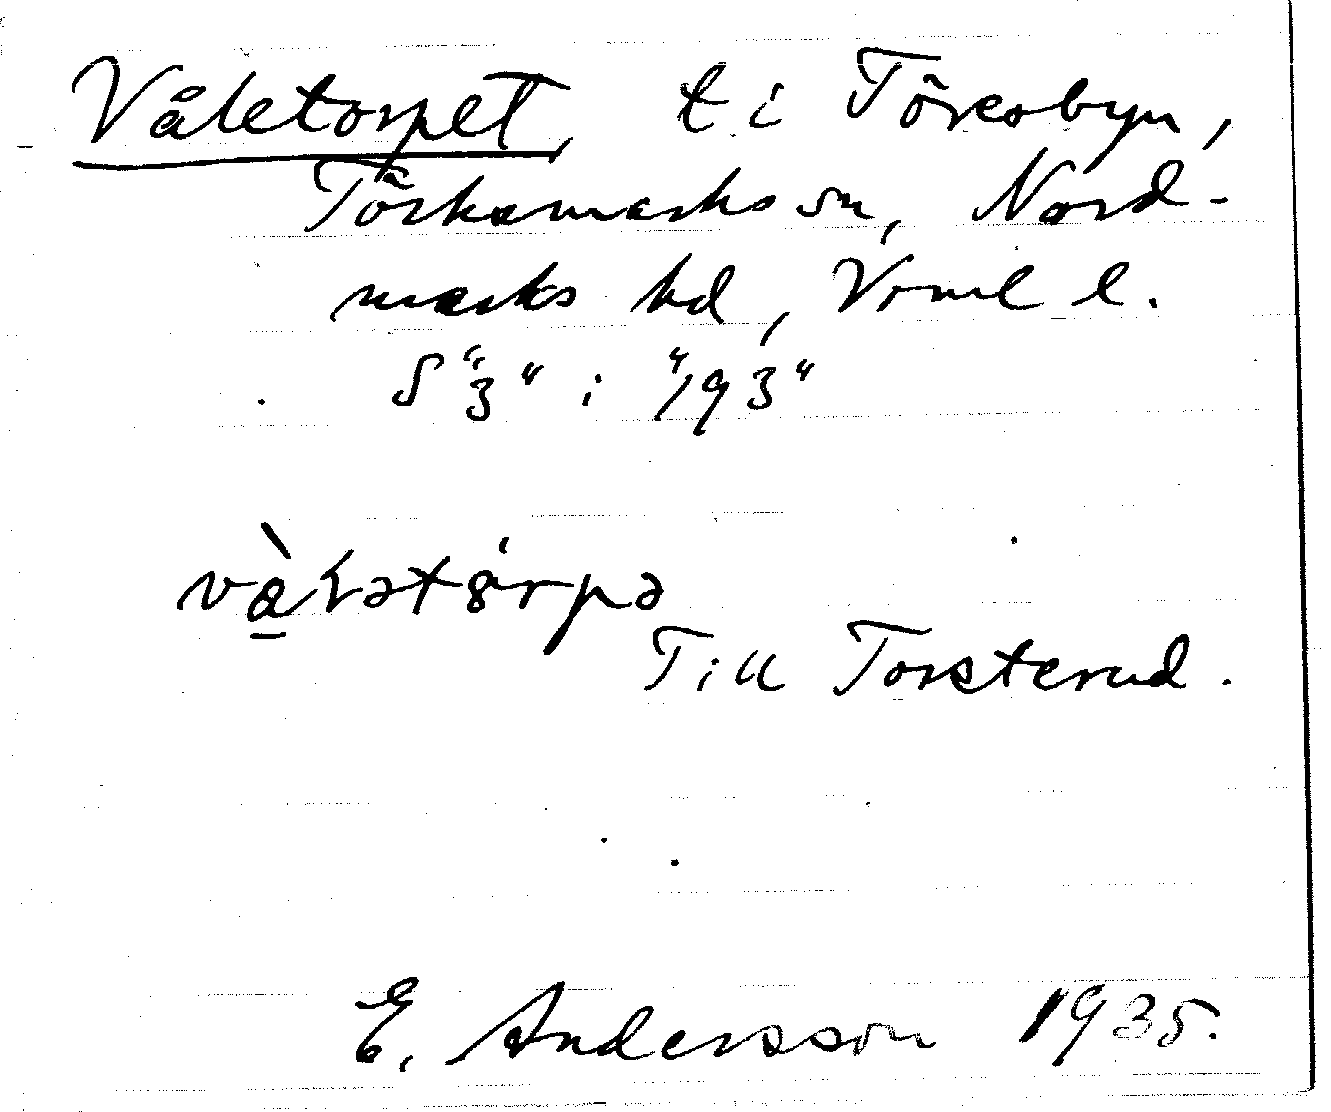 Våletorpet, t i Töresbyn,
Töcksmarks sn, Nord-
marks hd, Vrml l.
S "3" i "193"
và̠ɫətȣ́rpə
Till Torsterud.
E. Andersson 1935.